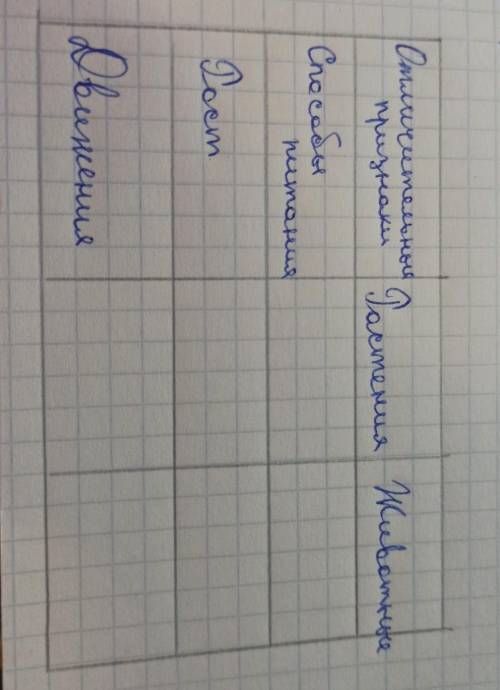 Отличительные
признаки
Растения
Животные
Способы
питания
Рост
Движения